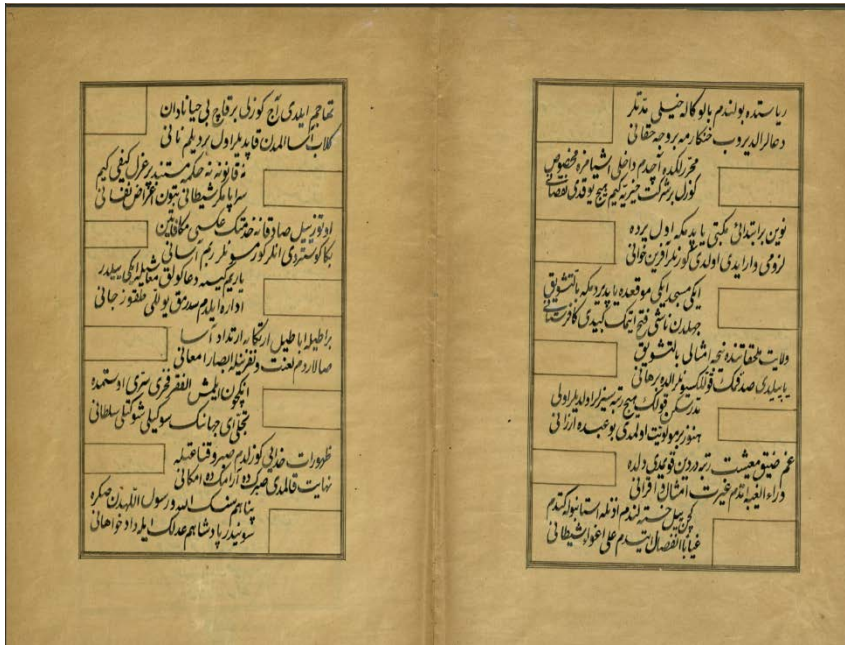 ریاستده بولندم بالوکاله خیلی مدتلر
دعالر الدیروب خنکارمه بروجه حقانی
محرر لکده آچدم داخلی اشیامزه مخصوص
کوزل بر شرکت خیریه کیم هیچ یوقدی نقصانی
نوین بر ابتدائی مکتبی یاپدمکه اول یرده
لزومی وار ایدی اولدی کورنلر آفرین خوانی
ایکی مسجد ایکی موقعده یاپدیردمکه بالتشویق
جهلدن ناشی فتح ایتمک کبیدی کافرستانی
ولایت ملحقاتنده نیجه امثالی بالتشویق
یاپیلدی صدقمک قوللاکسیونلرالده برهانی
مدرسکن قولک هیچ رتبه سیزلر اولدیلر اولی
هنوز بر مولویت اولمدی بو عبده ارزانی
غم ضیق معیشت رتبه دردین قومدی دلده
وراء الغیبه اتدم غیرت امثال و اقرانی
کچن ییل خسته کلدم اذنله استانبوله کتدم
غیاباً انفصال ایتدم علی اغواء شیطانی
تهاجم ایلدی آچ کوزلی بر قاچ بی حیا نادان
کلاب آسا المدن قاپدیلر اول بر دیلم نانی
نه قانونه نه حکمه مستند بر عزل کیفی کیم
سراپا مکر شیطانی بتون اغراض نفسانی
اوتوز ییل صادقانه خدمتک عکسی مکافاتین
بکا کوستردی انلر کورمسونلر ریم آسانی
یاریم کیسه دعاکولق معاشیله ایکی ییلدر
اداره ایلدم سدرمق یوللی طقوز جانی
براطیله اباطیل ارتکابه ارتداد آسا
صالاردم لعنت و نفرینله ابصار امعانی
انکچون ایلمش الفقر فخری سری اوستمده
تجلی ای جهانک سوکیلی شوکتلی سلطانی
ظهورات خدایی کوزلدم صبر و قناعتله
نهایت قالمدی صبرک ده آرامک ده امکانی
پناهم سنک الله و رسول اللهدن صکره
سونیدر پادشاهم عدلک ایله داد خواهانی